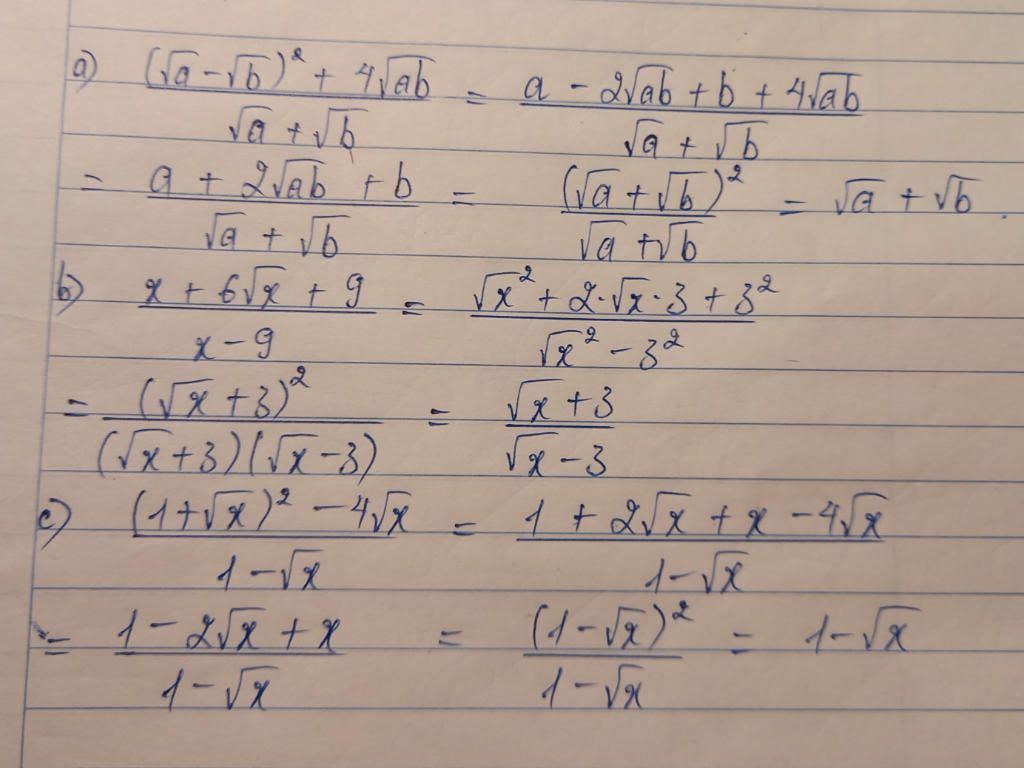 a) ((√a - √b)² + 4√ab)/(√a + √b) = (a - 2√ab + b + 4√ab)/(√a + √b)
= (a + 2√ab + b)/(√a + √b) = (√a + √b)²/(√a + √b) = √a + √b.
b) (x + 6√x + 9)/(x - 9) = (√x² + 2·√x·3 + 3²)/(√x² - 3²)
= (√x + 3)²/((√x + 3)(√x - 3)) = (√x + 3)/(√x - 3)
c) ((1 + √x)² - 4√x)/(1 - √x) = (1 + 2√x + x - 4√x)/(1 - √x)
= (1 - 2√x + x)/(1 - √x) = (1 - √x)²/(1 - √x) = 1 - √x